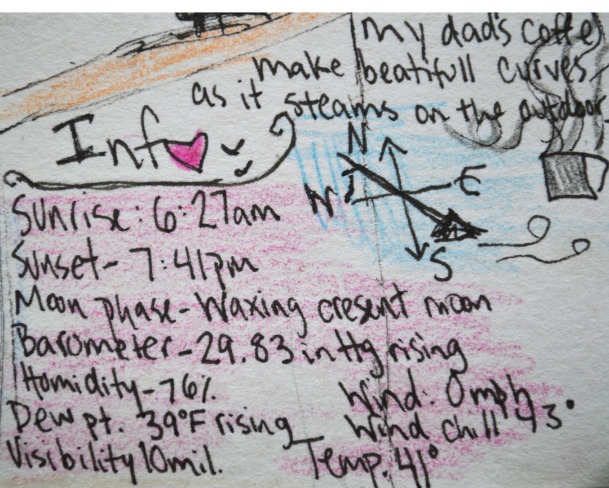 my dad's coffe
make beatifull curves
as it steams on the outdoor
Inf
N
N E
S
Sunrise: 6:27am
Sunset- 7:41pm
Moon phase-Waxing cresent moon
Barometer-29.83 in Hg rising
Homidity-76%
Wind: 0mph
Dew pt. 39°F rising
Wind chill 43°
Visibility 10mil.
Temp. 41°